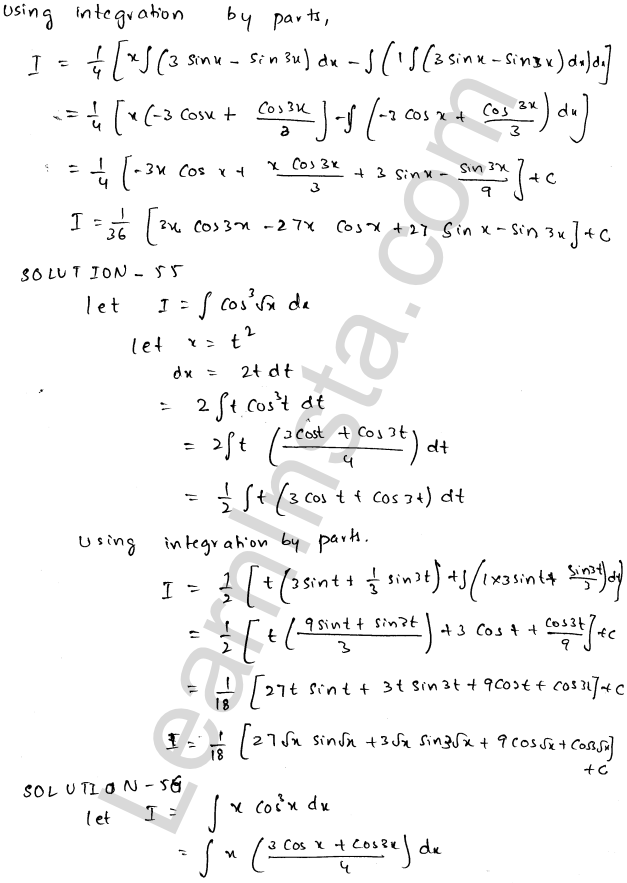 Using integration by parts,
I = 1/4 [x∫(3 sinx - sin 3x) dx - ∫(1∫(3 sinx - sin 3x) dx) dx]
= 1/4 [x(-3 cosx + cos3x/3] - ∫(-3 cos x + cos 3x/3) dx]
= 1/4 [-3x cos x + x cos3x/3 + 3 sinx - sin 3x/9] + c
I = 1/36 [3x cos3x - 27x cosx + 27 sin x - sin 3x] + c
SOLUTION - 55
let I = ∫ cos³√x dx
let x = t²
dx = 2t dt
= 2∫t cos³t dt
= 2∫t (3cost + cos3t/4) dt
= 1/2 ∫t (3 cos t + cos 3t) dt
Using integration by parts.
I = 1/2 [t(3sint + 1/3 sin3t) + ∫(1×3sint + sin3t/3) dt]
= 1/2 [t(9sint + sin3t/3) + 3 cos t + cos3t/9] + c
= 1/18 [27t sint + 3t sin3t + 9cost + cos3t] + c
I = 1/18 [27√x sin√x + 3√x sin3√x + 9cos√x + cos3√x] + c
SOLUTION - 56
let I = ∫ x cos³x dx
= ∫ x (3 cos x + cos3x/4) dx
LearnInsta.com